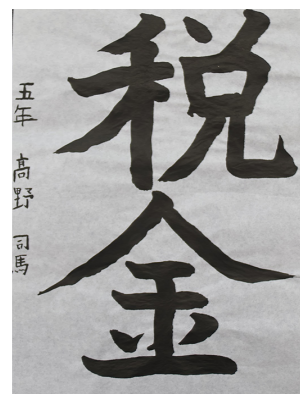 税金
五年 髙野 司馬